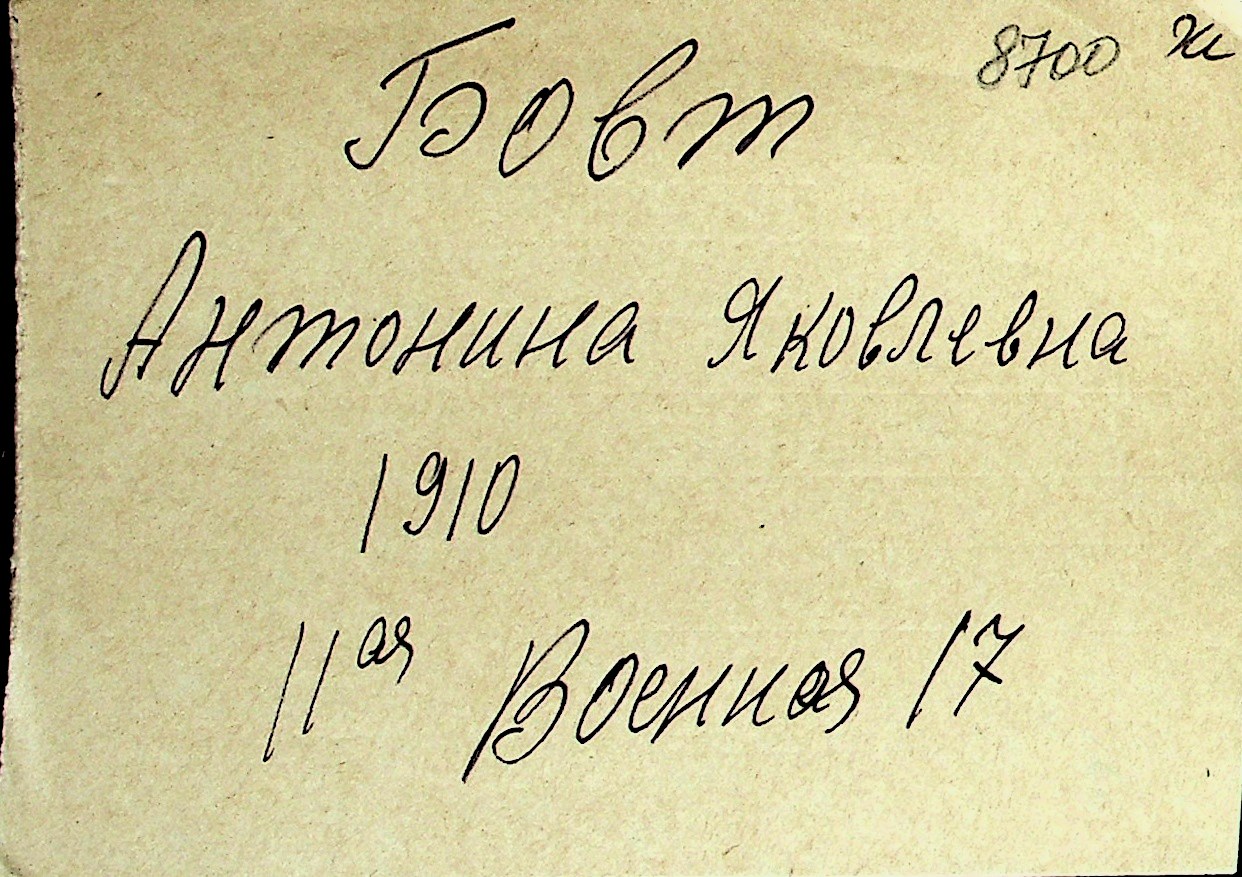 8700 ж
Бовт
Антонина Яковлевна
1910
11ая Военная 17